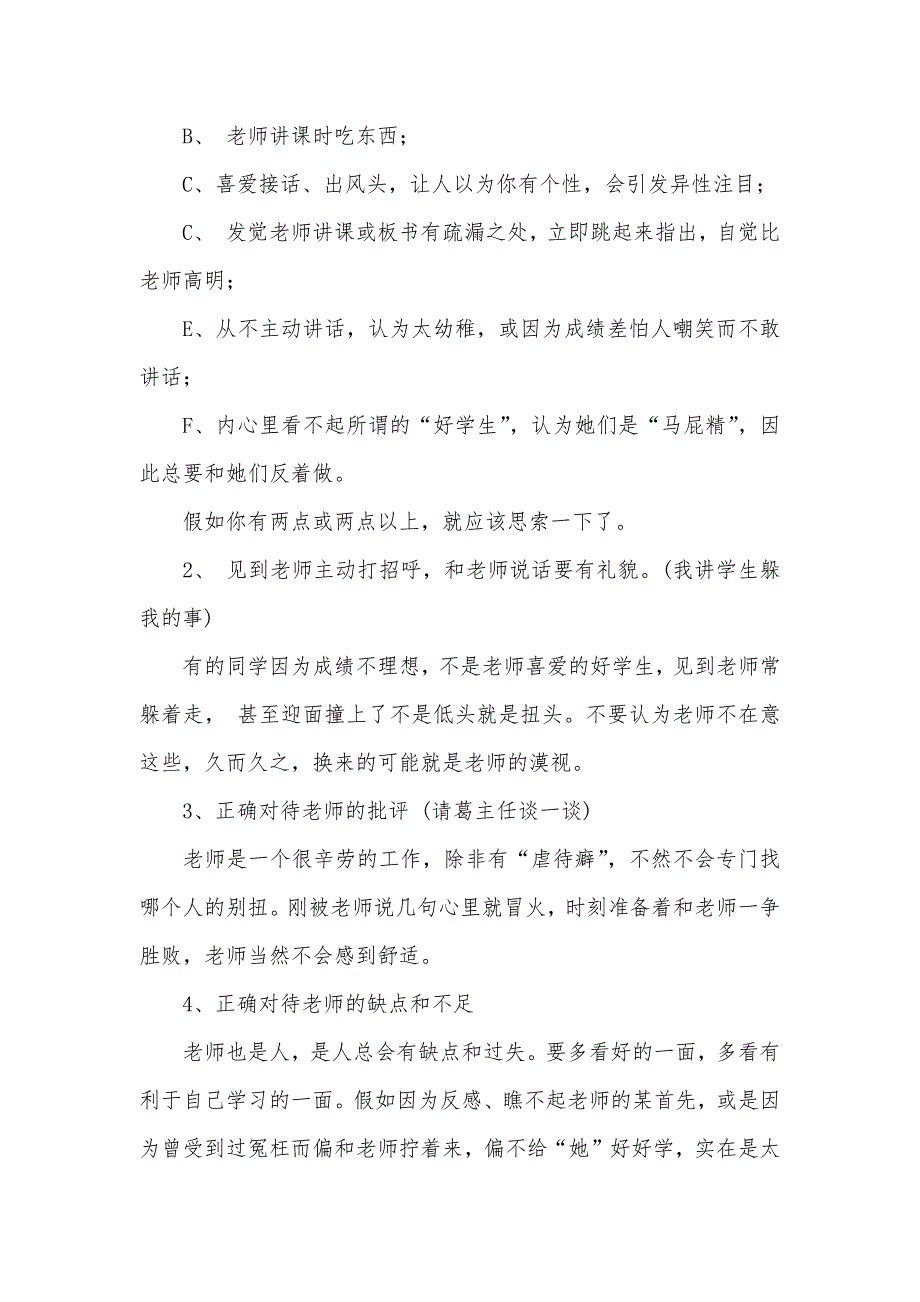 B、 老师讲课时吃东西;
C、喜爱接话、出风头,让人以为你有个性,会引发异性注目;
C、 发觉老师讲课或板书有疏漏之处,立即跳起来指出,自觉比
老师高明;
E、从不主动讲话,认为太幼稚,或因为成绩差怕人嘲笑而不敢
讲话;
F、内心里看不起所谓的“好学生”,认为她们是“马屁精”,因
此总要和她们反着做。
假如你有两点或两点以上,就应该思索一下了。
2、 见到老师主动打招呼,和老师说话要有礼貌。(我讲学生躲
我的事)
有的同学因为成绩不理想,不是老师喜爱的好学生,见到老师常
躲着走, 甚至迎面撞上了不是低头就是扭头。不要认为老师不在意
这些,久而久之,换来的可能就是老师的漠视。
3、正确对待老师的批评 (请葛主任谈一谈)
老师是一个很辛劳的工作,除非有“虐待癖”,不然不会专门找
哪个人的别扭。刚被老师说几句心里就冒火,时刻准备着和老师一争
胜败,老师当然不会感到舒适。
4、正确对待老师的缺点和不足
老师也是人,是人总会有缺点和过失。要多看好的一面,多看有
利于自己学习的一面。假如因为反感、瞧不起老师的某首先,或是因
为曾受到过冤枉而偏和老师拧着来,偏不给“她”好好学,实在是太